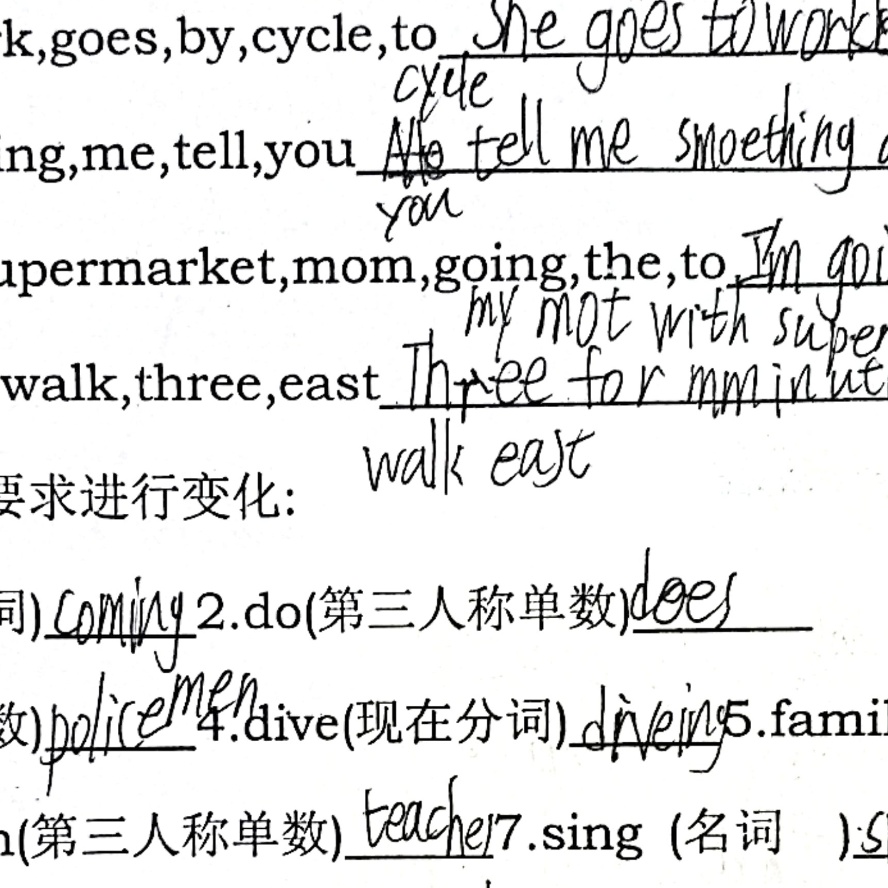 k,goes,by,cycle,to She goes to work
cycle
ing,me,tell,you tell me smoething
you
upermarket,mom,going,the,to I'm goi
my mot with super
walk,three,east Three for mminut
walk east
要求进行变化:
词)coming 2.do(第三人称单数)does
数)policemen 4.dive(现在分词) diveing 5.famil
(第三人称单数) teacher 7.sing (名词 ) s